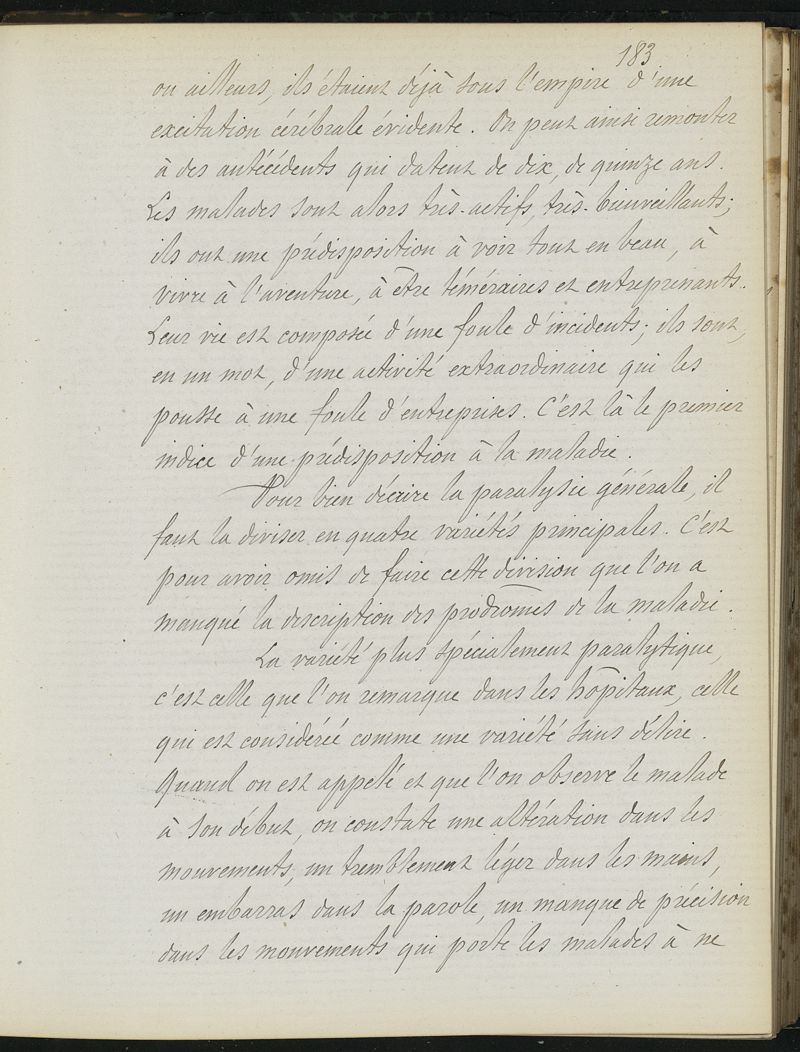 183
ou ailleurs, ils étaient déjà sous l'empire d'une
excitation cérébrale évidente. On peut ainsi remonter
à des antécédents qui datent de dix, de quinze ans.
Les malades sont alors très-actifs, très-bienveillants;
ils ont une prédisposition à voir tout en beau, à
vivre à l'aventure, à être téméraires et entreprenants.
Leur vie est composée d'une foule d'incidents; ils sont,
en un mot, d'une activité extraordinaire qui les
pousse à une foule d'entreprises. C'est là le premier
indice d'une prédisposition à la maladie.
Pour bien décrire la paralysie générale, il
faut la diviser en quatre variétés principales. C'est
pour avoir omis de faire cette division que l'on a
manqué la description des prodrômes de la maladie.
La variété plus spécialement paralytique,
c'est celle que l'on remarque dans les hôpitaux, celle
qui est considérée comme une variété sans délire.
Quand on est appelé et que l'on observe le malade
à son début, on constate une altération dans les
mouvements, un tremblement léger dans les mains,
un embarras dans la parole, un manque de précision
dans les mouvements qui porte les malades à ne